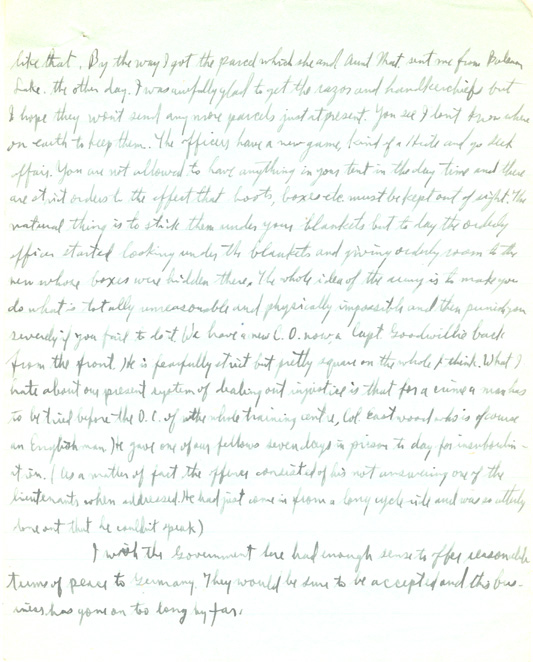 like that. By the way I got the parcel which she and Aunt Mat. sent me from
Lake. the other day. I was awfully glad to get the razor and handkerchiefs but
I hope they won't send any more parcels just at present. You see I don't know where
on earth to keep them. The officers have a new game, kind of a Hide and go seek
affair. You are not allowed to have anything in your tent in the day time and there
are strict orders to the effect that boots, boxes etc. must be kept out of sight. The
natural thing is to stick them under your blankets but to day the orderly
officer started looking under the blankets and giving orderly room to the
men whose boxes were hidden there. The whole idea of the army is to make you
do what is totally unreasonable and physically impossible and then punish you
severely if you fail to do it. We have a new C.O. now a Capt. Goodwillie back
from the front. He is fearfully strict but pretty square on the whole I think. What I
hate about our present system of dealing out injustice is that for a crime a man has
to be tried before the O.C. of the whole training centre, Col. Eastwood who is of course
an English man. He gave one of our fellows seven days in prison to day for insubordin-
ation. (As a matter of fact the offence consisted of his not answering one of the
lieutenants when addressed. He had just come in from a long cycle ride and was so utterly
done out that he couldn't speak)
I wish the Government here had enough sense to offer reasonable
terms of peace to Germany. They would be sure to be accepted and this bus-
iness has gone on too long by far.